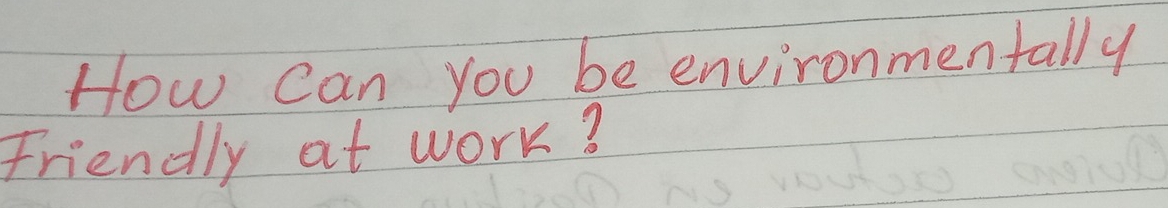 How can you be environmentally
Friendly at work?